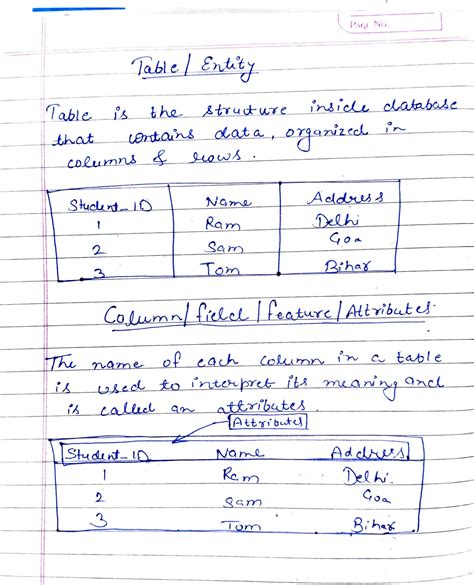 Page No.
Table/ Entity
Table is the struture inside database
that contains data, organized in
columns & rows.
Student_ID Name Address
1 Ram Delhi
2 Sam Goa
3 Tom Bihar
Column/field/feature/Attributes.
The name of each column in a table
is used to interpret its meaning and
is called an attributes.
Attributes
Student_ID Name Address
1 Ram Delhi
2 Sam Goa
3 Tom Bihar